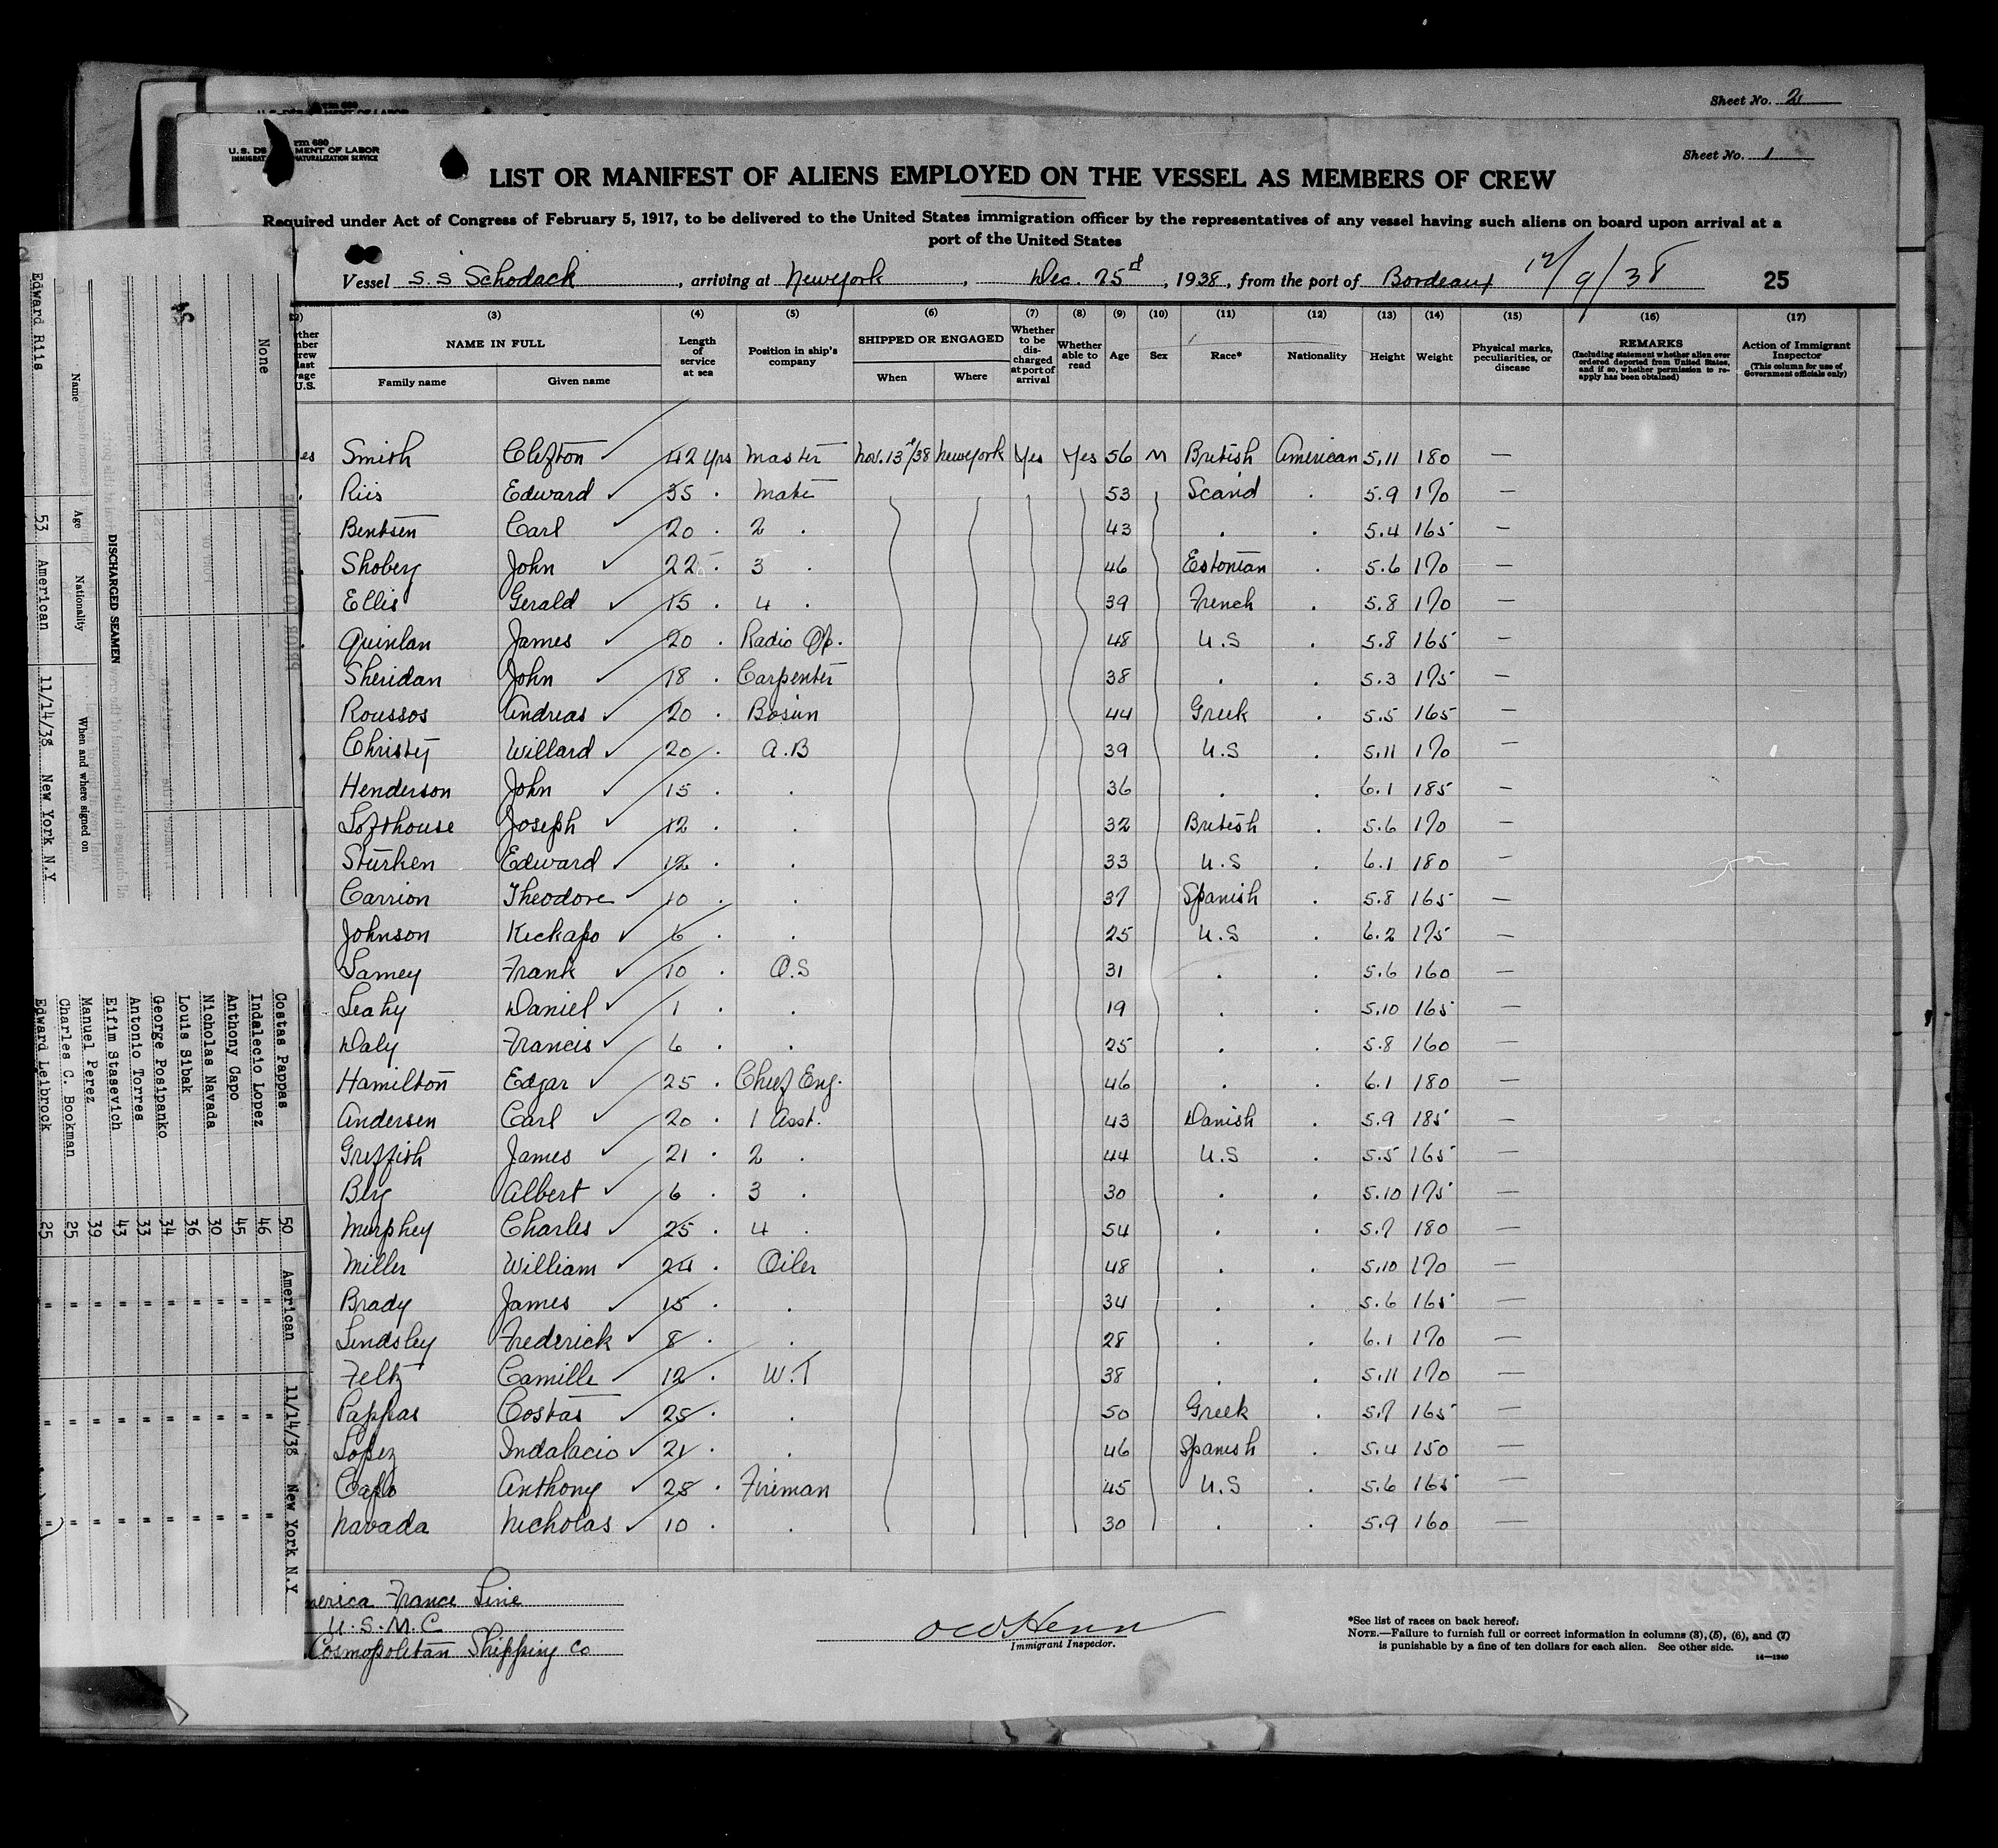 Sheet No. 2
Sheet No. 1
rm 680
U. S. DE MENT OF LABOR
IMMIGRAT NATURALIZATION SERVICE
LIST OR MANIFEST OF ALIENS EMPLOYED ON THE VESSEL AS MEMBERS OF CREW
Required under Act of Congress of February 5, 1917, to be delivered to the United States immigration officer by the representatives of any vessel having such aliens on board upon arrival at a
port of the United States
Vessel S.S Schodack, arriving at New york, Dec. 25d, 1938, from the port of Bordeaux 12/9/38 25
(3) (4) (5) (6) (7) (8) (9) (10) (11) (12) (13) (14) (15) (16) (17)
NAME IN FULL
Family name Given name
Length of service at sea
Position in ship's company
SHIPPED OR ENGAGED
When Where
Whether to be discharged at port of arrival
Whether able to read
Age Sex Race* Nationality Height Weight
Physical marks, peculiarities, or disease
REMARKS
(Including statement whether alien ever ordered deported from United States, and if so, whether permission to re-apply has been obtained)
Action of Immigrant Inspector
(This column for use of Government officials only)
es Smith Clifton 42 yrs Master Nov. 13/38 New york Yes Yes 56 M British American 5.11 180 —
Riis Edward 35 . Mate 53 Scand . 5.9 170 —
Bentsen Carl 20 . 2 . 43 . . 5.4 165 —
Shoberg John 22 . 3 . 46 Estonian . 5.6 170 —
Ellis Gerald 15 . 4 . 39 French . 5.8 170 —
Quinlan James 20 . Radio Op. 48 U.S . 5.8 165 —
Sheridan John 18 . Carpenter 38 . . 5.3 175 —
Roussos Andreas 20 . Bosun 44 Greek . 5.5 165 —
Christy Willard 20 . A.B 39 U.S . 5.11 170 —
Henderson John 15 . . 36 . . 6.1 185 —
Lofthouse Joseph 12 . . 32 British . 5.6 170 —
Sturken Edward 12 . . 33 U.S . 6.1 180 —
Carrion Theodore 10 . . 37 Spanish . 5.8 165 —
Johnson Kickapo 6 . . 25 U.S . 6.2 175 —
Lamey Frank 10 . O.S 31 . . 5.6 160 —
Leahy Daniel 1 . . 19 . . 5.10 165 —
Daly Francis 6 . . 25 . . 5.8 160 —
Hamilton Edgar 25 . Chief Eng. 46 . . 6.1 180 —
Andersen Carl 20 . 1 Asst. 43 Danish . 5.9 185 —
Griffith James 21 . 2 . 44 U.S . 5.5 165 —
Berg Albert 6 . 3 . 30 . . 5.10 175 —
Murphey Charles 25 . 4 . 54 . . 5.7 180 —
Miller William 24 . Oiler 48 . . 5.10 170 —
Brady James 15 . . 34 . . 5.6 165 —
Lindsley Frederick 8 . . 28 . . 6.1 170 —
Feltz Camille 12 . W.T 38 . . 5.11 170 —
Pappas Costas 25 . . 50 Greek . 5.7 165 —
Lopez Indalacio 21 . . 46 Spanish . 5.4 150 —
Capo Anthony 28 . Fireman 45 U.S . 5.6 165 —
Navada Nicholas 10 . . 30 . . 5.9 160 —
merica France Line
U.S.M.C
Cosmopolitan Shipping Co
Immigrant Inspector.
*See list of races on back hereof.
NOTE.—Failure to furnish full or correct information in columns (3), (5), (6), and (7)
is punishable by a fine of ten dollars for each alien. See other side.
14—1240
None
DISCHARGED SEAMEN
Name Age Nationality When and where signed on
Edward Riis 53 American 11/14/38 New York N.Y
Costas Pappas 50 American 11/14/38 New York N.Y
Indalecio Lopez 46 " " "
Anthony Capo 45 " " "
Nicholas Navada 30 " " "
Louis Sibak 36 " " "
George Posipanko 34 " " "
Antonio Torres 33 " " "
Eifim Stasevich 43 " " "
Manuel Perez 39 " " "
Charles C. Bookman 25 " " "
Edward Leibrock 25 " " "